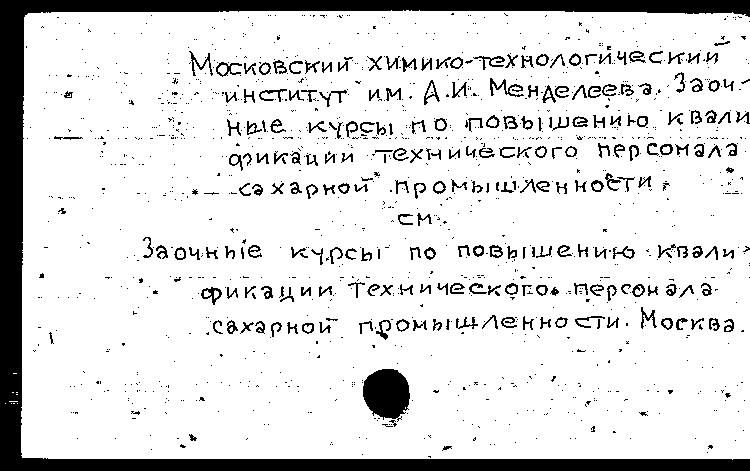 Московский химико-технологический
институт им. Д.И. Менделеева. Заоч-
ные курсы по повышению квали
фикации технического персонала
сахарной промышленности.
см.
Заочные курсы по повышению квали-
фикации технического персонала
сахарной промышленности. Москва.